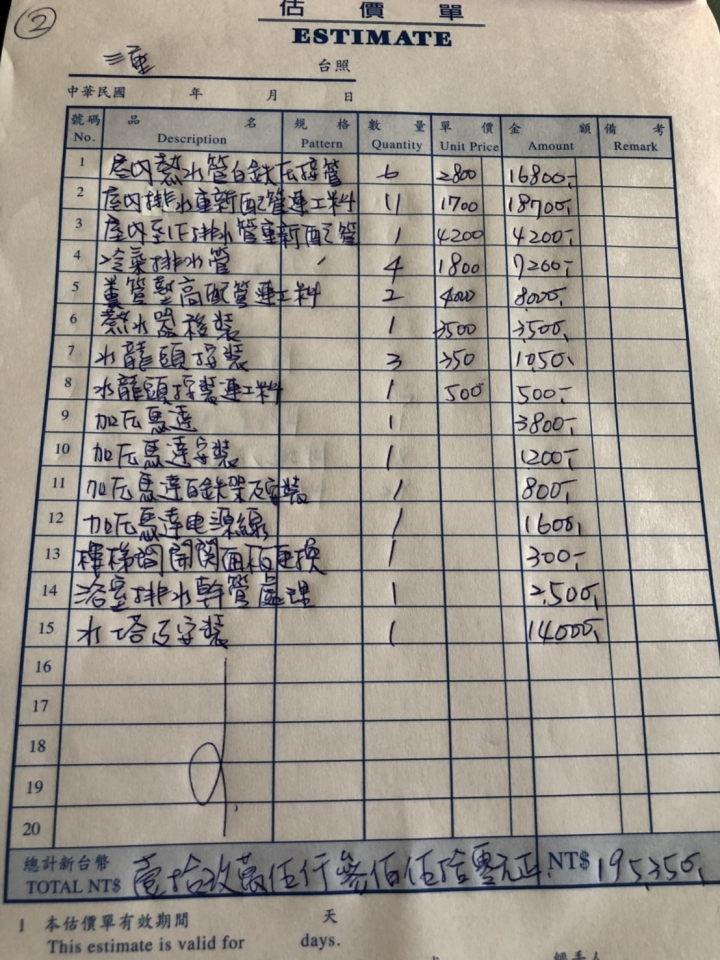 ②
估價單
ESTIMATE
三重 台照
中華民國 年 月 日
號碼 品名 規格 數量 單價 金額 備考
No. Description Pattern Quantity Unit Price Amount Remark
1 屋內熱水管白鉄瓦接管 6 2800 16800,-
2 屋內排水重新配管連工料 11 1700 18700,-
3 屋內至1F排水管重新配管 1 4200 4200,-
4 冷氣排水管 4 1800 7200,-
5 糞管墊高配管連工料 2 4000 8000,-
6 熱水器移裝 1 3500 3,500,-
7 水龍頭按裝 3 350 1050,-
8 水龍頭按裝連工料 1 500 500,-
9 加压馬達 1 3800,-
10 加压馬達安裝 1 1200,-
11 加压馬達白鉄架及安裝 1 800,-
12 加压馬達电源線 1 1600,-
13 樓梯間開関面板更換 1 300,-
14 浴室排水幹管處理 1 2,500,-
15 水塔及安裝 1 14000,-
16
17
18
19
20
總計新台幣 壹拾玖萬伍仟參佰伍拾零元正 NT$ 195,350,-
TOTAL NT$
1 本估價單有效期間 天
This estimate is valid for days.
經手人